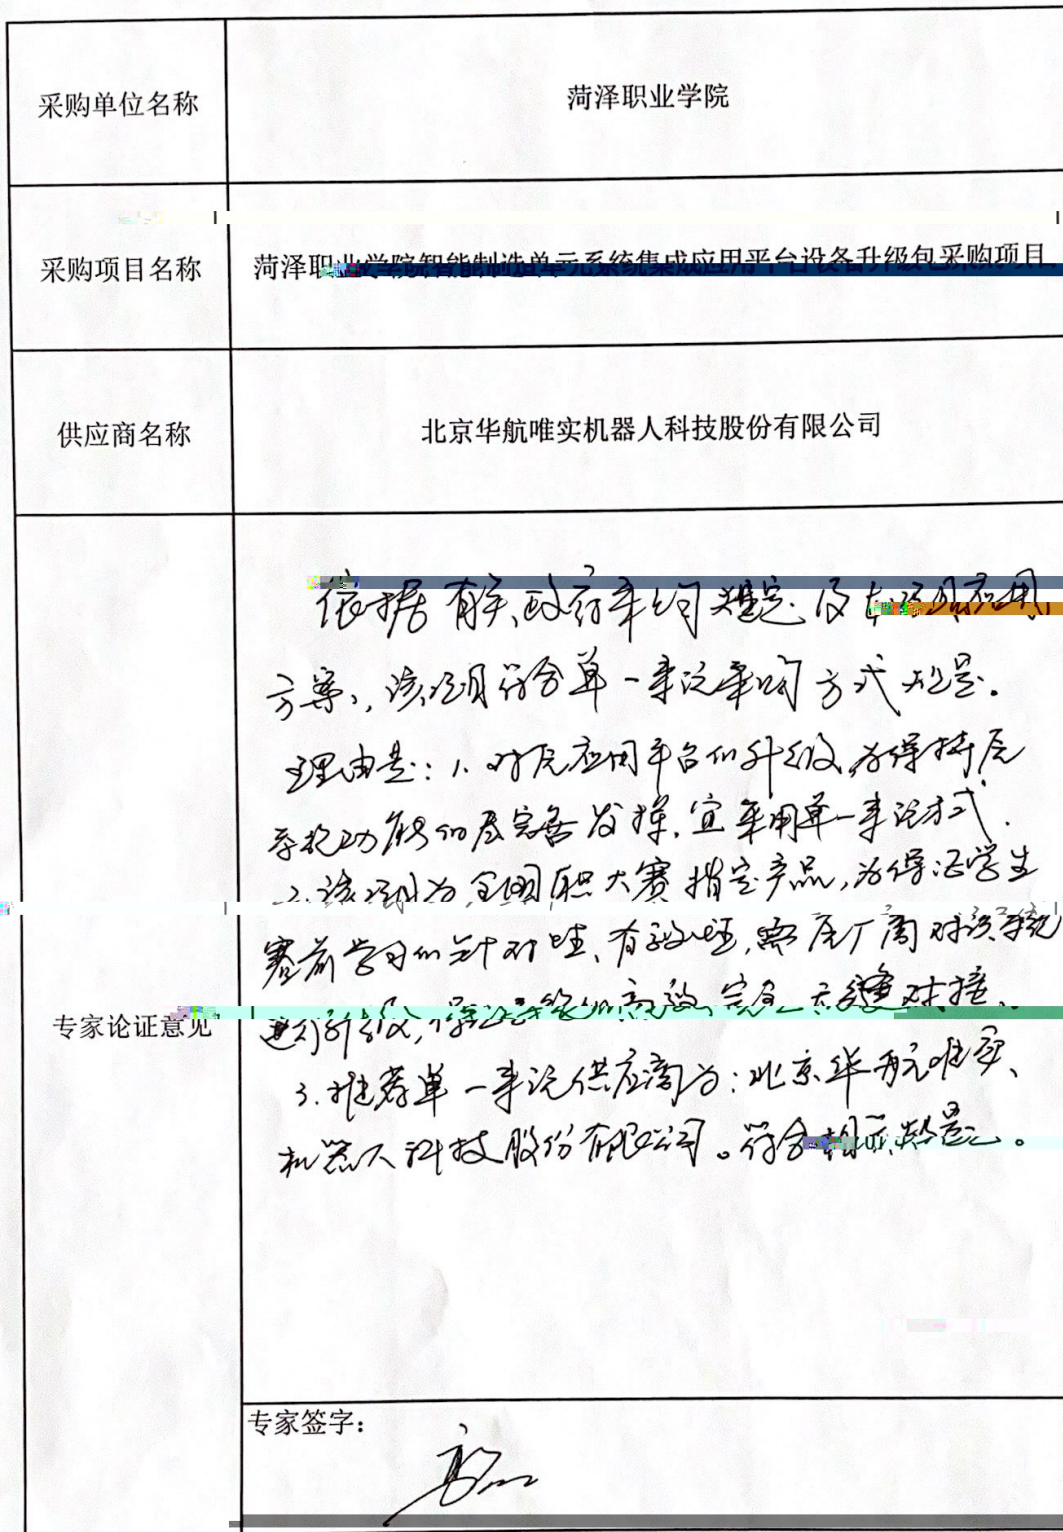 采购单位名称
菏泽职业学院
采购项目名称
菏泽职业学院智能制造单元系统集成应用平台设备升级包采购项目
供应商名称
北京华航唯实机器人科技股份有限公司
专家论证意见
依据有关政府采购规定及本项目应用
方案,该项目符合单一来源采购方式规定。
理由是:1、对原应用平台的升级,为保持原
系统功能的完善发挥,宜采用单一来源方式.
2.该项目为全国职大赛指定产品,为保证学生
赛前学习的针对性、有效性,需原厂商对该系统
进行升级,保证系统的高效、完全无缝对接、
3.推荐单一来源供应商为:北京华航唯实、
机器人科技股份有限公司。符合相关规定。
专家签字: